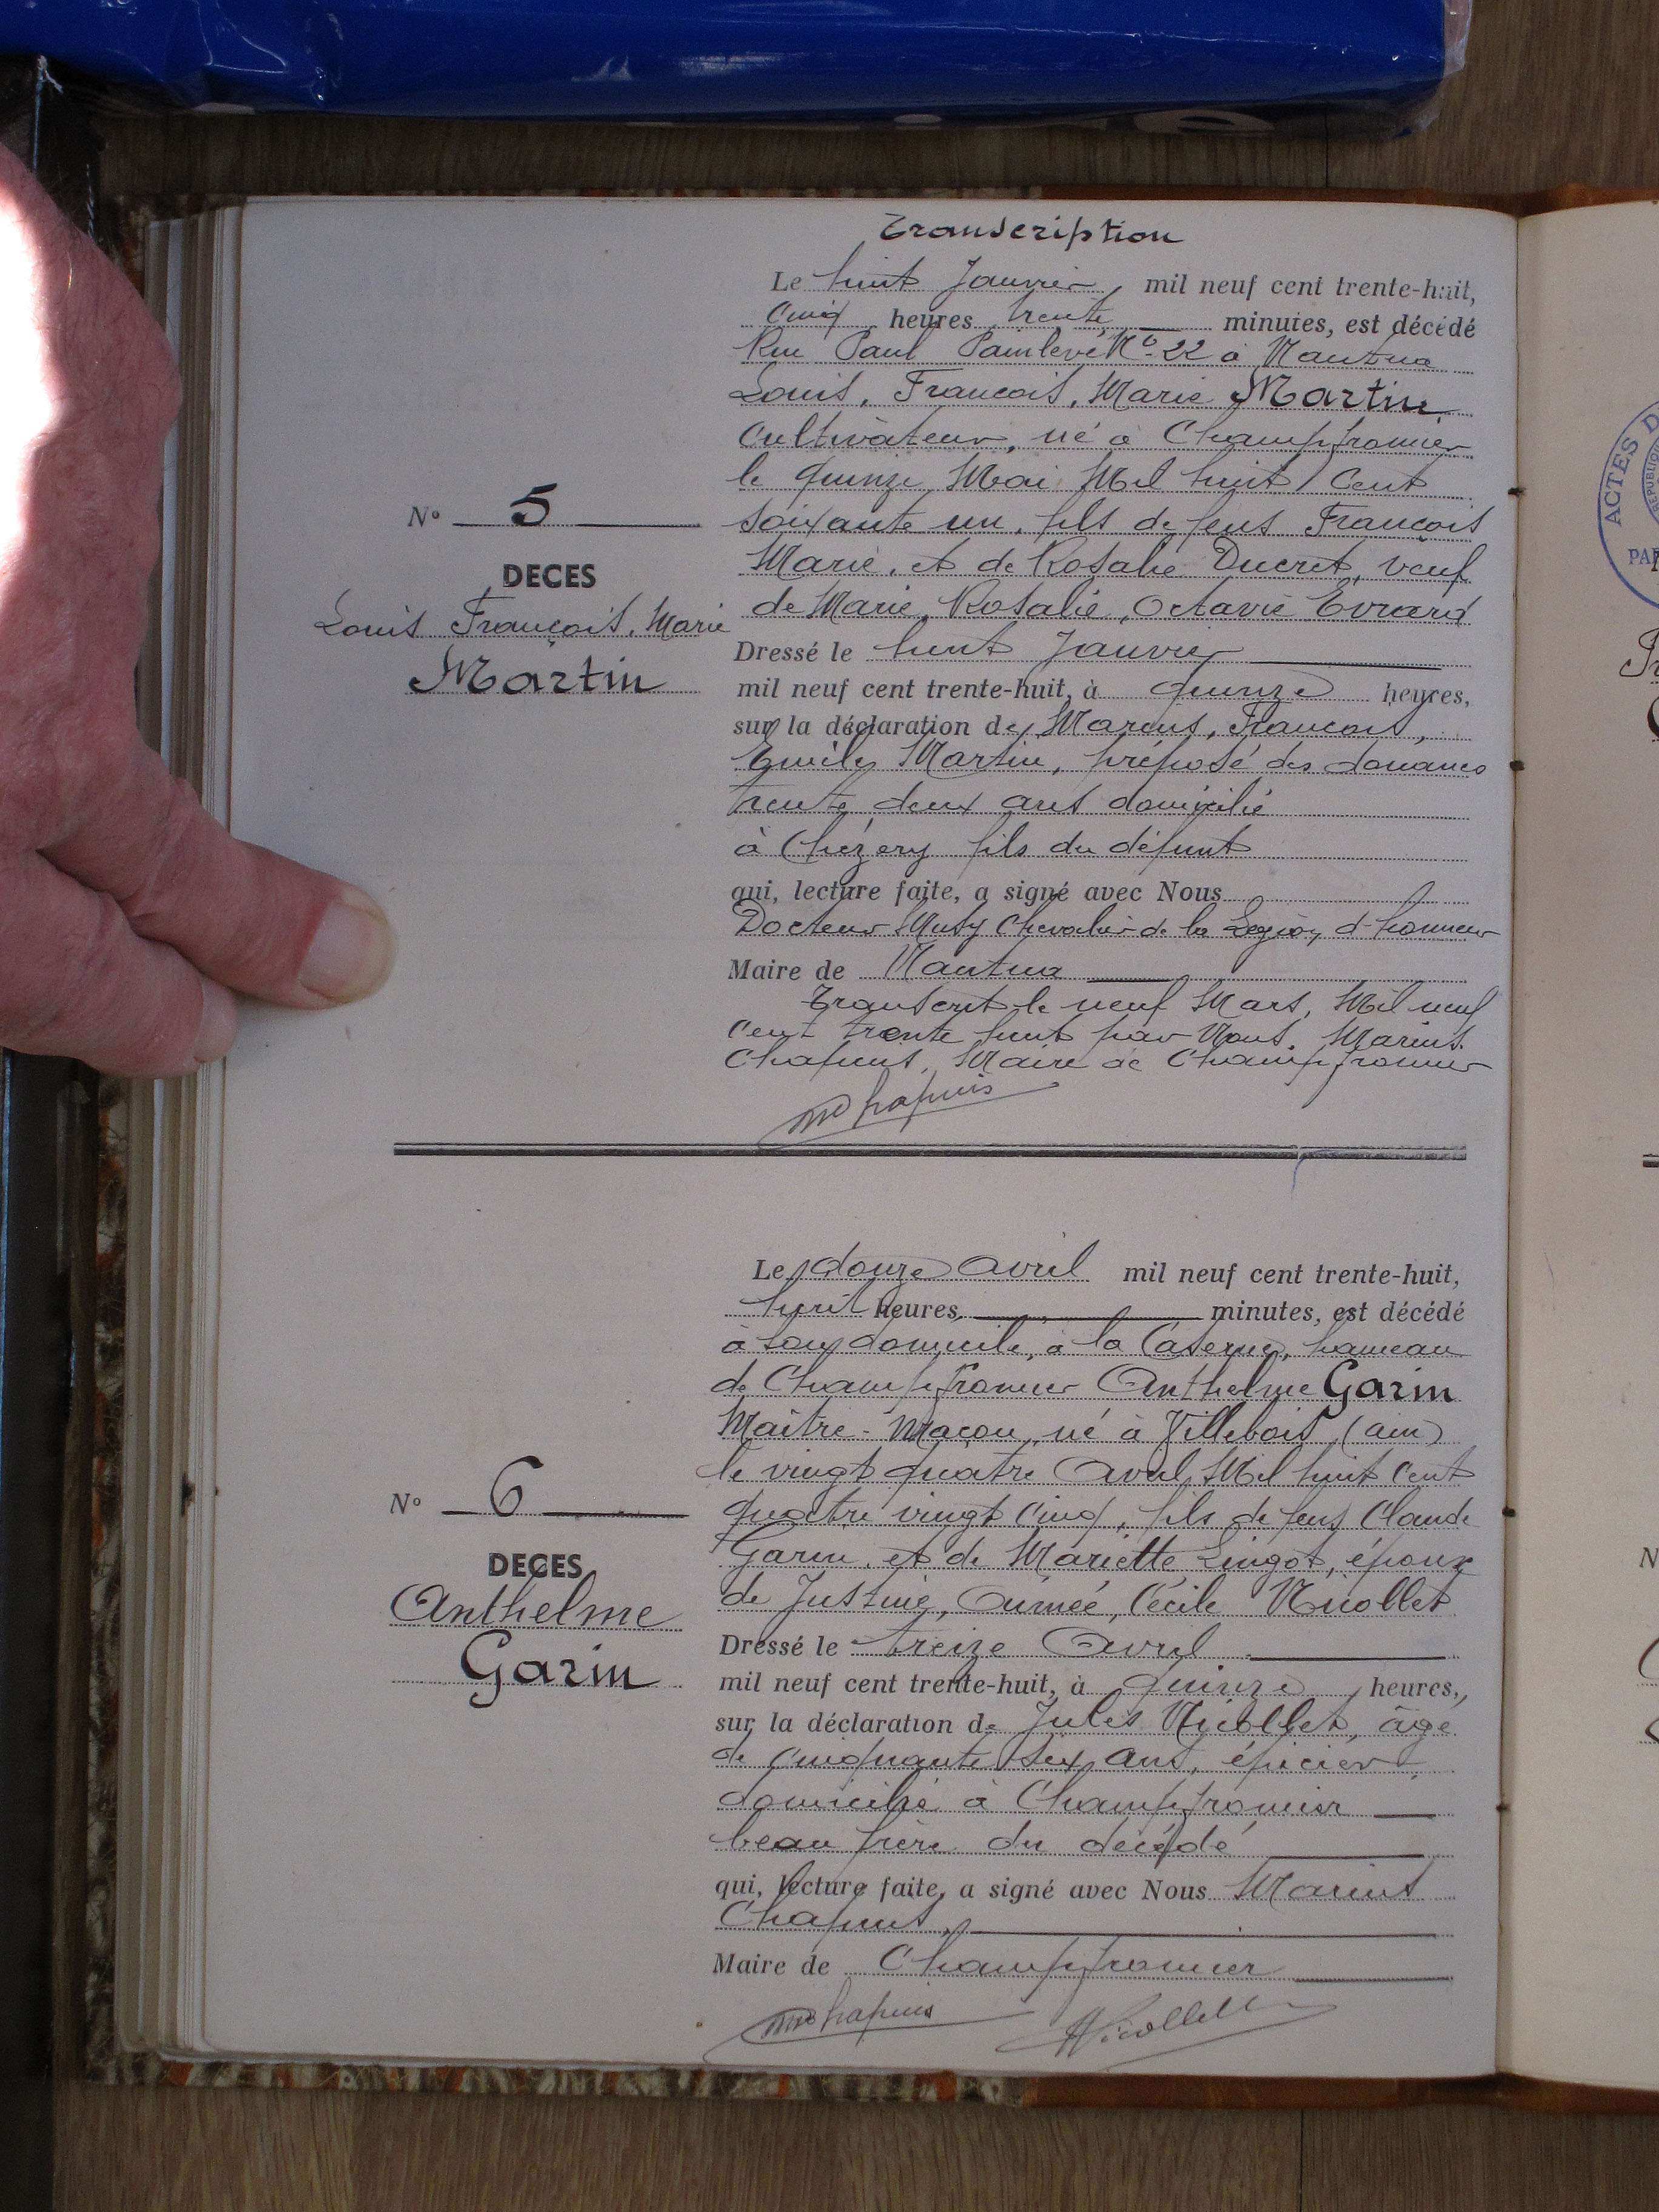 Transcription
Le huit Janvier, mil neuf cent trente-huit,
Cinq heures trente minutes, est décédé
Rue Paul Painlevé No 22 à Nantua
Louis, François, Marie Martin
Cultivateur, né à Champfromier
le quinze Mai Mil huit Cent
Soixante un, fils de feus François
Marie, et de Rosalie Ducret, veuf
de Marie, Rosalie, Octavie Evrard
No 5
DECES
Louis François, Marie
Martin
Dressé le huit Janvier
mil neuf cent trente-huit, à quinze heures,
sur la déclaration de Marius, François,
Emile Martin, préposé des douanes
trente deux ans domicilié
à Chézery fils du défunt
qui, lecture faite, a signé avec Nous
Docteur Musy Chevalier de la Légion d'honneur
Maire de Nantua
Transcrit le neuf Mars, Mil neuf
Cent trente huit par Nous, Marius
Chapuis, Maire de Champfromier
MChapuis
Le douze Avril mil neuf cent trente-huit,
huit heures minutes, est décédé
à son domicile, à la Caserne, hameau
de Champfromier Anthelme Garin
Maître-Maçon, né à Villebois (ain)
le vingt quatre Avril Mil huit Cent
quatre vingt Cinq, fils de feus Claude
Garin, et de Mariette Lingot, époux
de Justine, Aimée, Cécile Nicollet
No 6
DECES
Anthelme
Garin
Dressé le treize Avril
mil neuf cent trente-huit, à quinze heures,
sur la déclaration de Jules Nicollet, âgé
de Cinquante six ans, épicier
domicilié à Champfromier
beau frère du décédé
qui, lecture faite, a signé avec Nous Marius
Chapuis,
Maire de Champfromier
MChapuis Nicollet
ACTES D